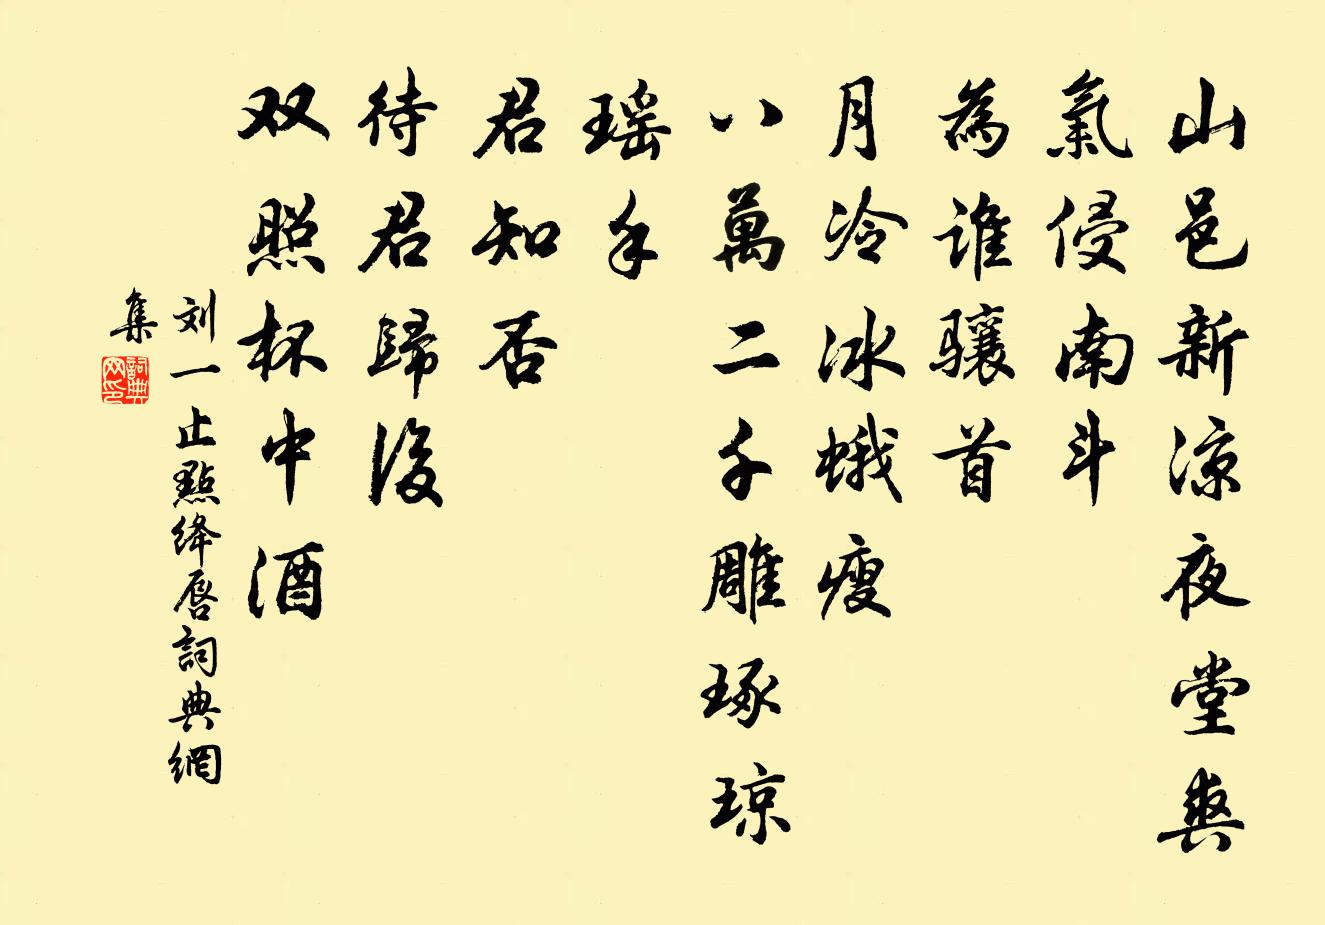 山邑新凉夜堂爽
氣侵南斗
為谁骧首
月冷冰蛾瘦
八萬二千雕琢琼
瑶手
君知否
待君歸後
双照杯中酒
刘一止點绛唇詞典網
集
詞典网印